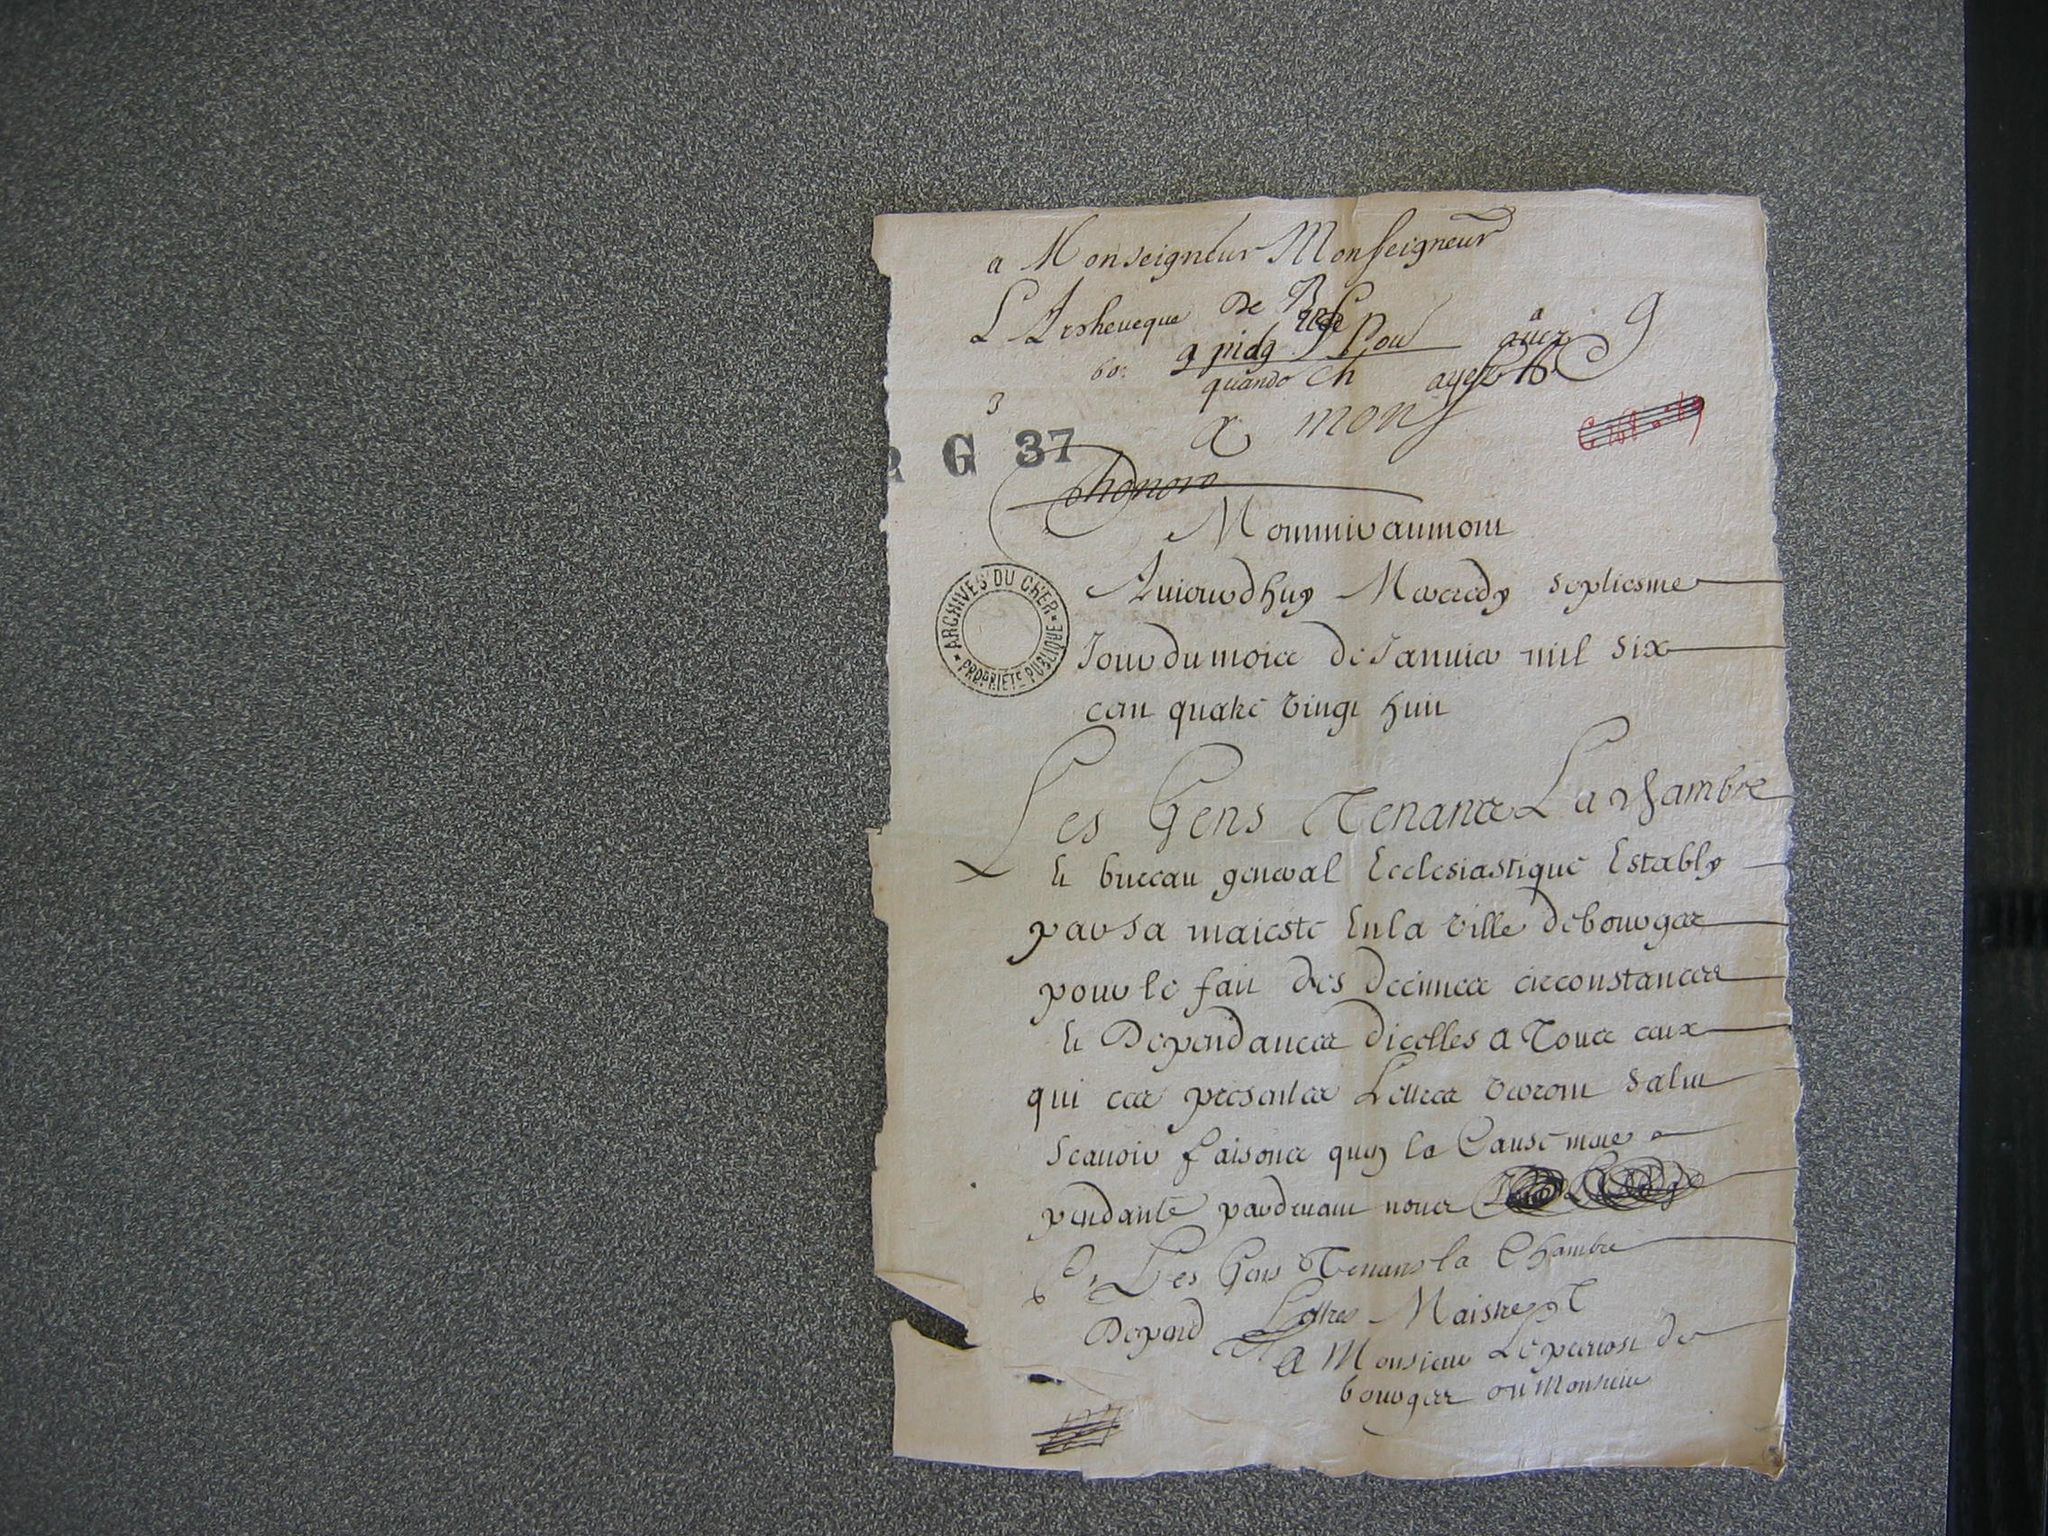 a Monseigneur Monseigneur
L Archeueque de B
60: q pidg pour a auez 9
quando ch ayez
3
a mons
2 G 37
honoro
ARCHIVES DU CHER
PROPRIÉTÉ PUBLIQUE
Auiourdhuy Mercredy septiesme
Jour du mois de Januier mil six
cent quatre vingt huit
Les Gens Tenans La Chambre
et bureau general Ecclesiastique Estably
par sa maieste En la ville de bourges
pour le fait des decimes circonstances
et Dependances dicelles a Tous ceux
qui ces presentes Lettres verront salut
scauoir faisons quen la Cause mue
pendante pardeuant nous
Les Gens Tenans la Chambre
Depend Lettres Maistre
A Monsieur Le preuost de
bourges ou Monsieur